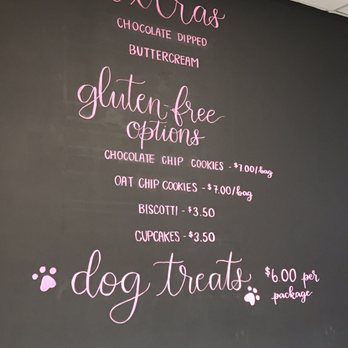 extras
CHOCOLATE DIPPED
BUTTERCREAM
gluten-free
options
CHOCOLATE CHIP COOKIES - $7.00/bag
OAT CHIP COOKIES - $7.00/bag
BISCOTTI - $3.50
CUPCAKES - $3.50
dog treats $6.00 per
package